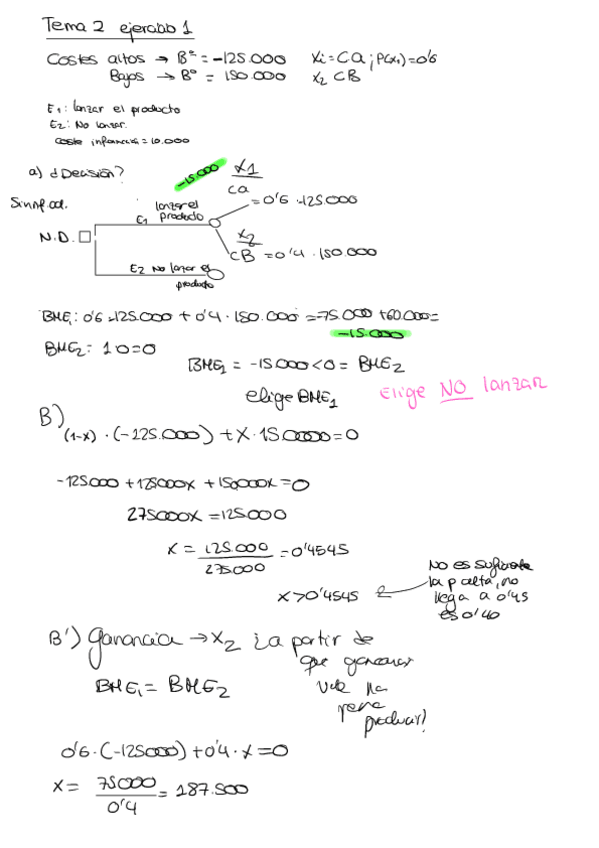 Tema 2 ejercicio 1
Costes altos → Bº = -125.000 X1 = CA ; P(x1) = 0'6
Bajos → Bº = 150.000 X2 CB
E1: lanzar el producto
E2: No lanzar.
Coste información = 10.000
a) ¿Decisión?
-15.000
X1
CA
= 0'6 · -125.000
Sin inf. ad.
lanzar el
E1 producto
N.D.
X2
CB = 0'4 · 150.000
E2 No lanzar el
producto
BME1: 0'6 · -125.000 + 0'4 · 150.000 = -75.000 + 60.000 =
-15.000
BME2: 1·0=0
BME1 = -15.000 < 0 = BME2
elige BME1
Elige NO lanzar
B)
(1-x) · (-125.000) + x · 150.000 = 0
-125000 + 125000x + 150000x = 0
275000x = 125000
x = 125.000 = 0'4545
275000
x > 0'4545
No es suficiente
la p alta, no
llega a 0'45
es 0'40
B') Ganancia → X2 ¿a partir de
que ganancia
vale la
pena
producir?
BME1 = BME2
0'6 · (-125000) + 0'4 · x = 0
x = 75000 = 187.500
0'4